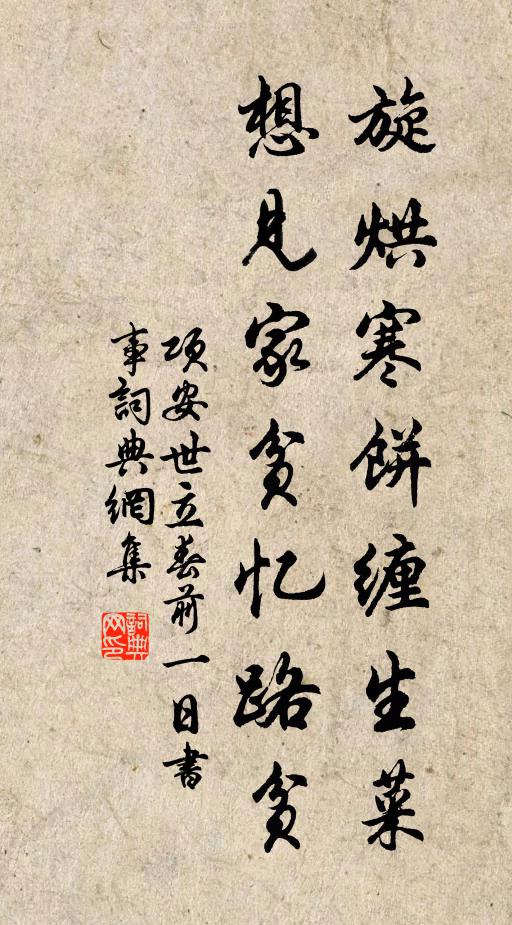 旋烘寒餅缠生菜
想見家貧忆路貧
项安世立春前一日書
事詞典網集
詞典网印